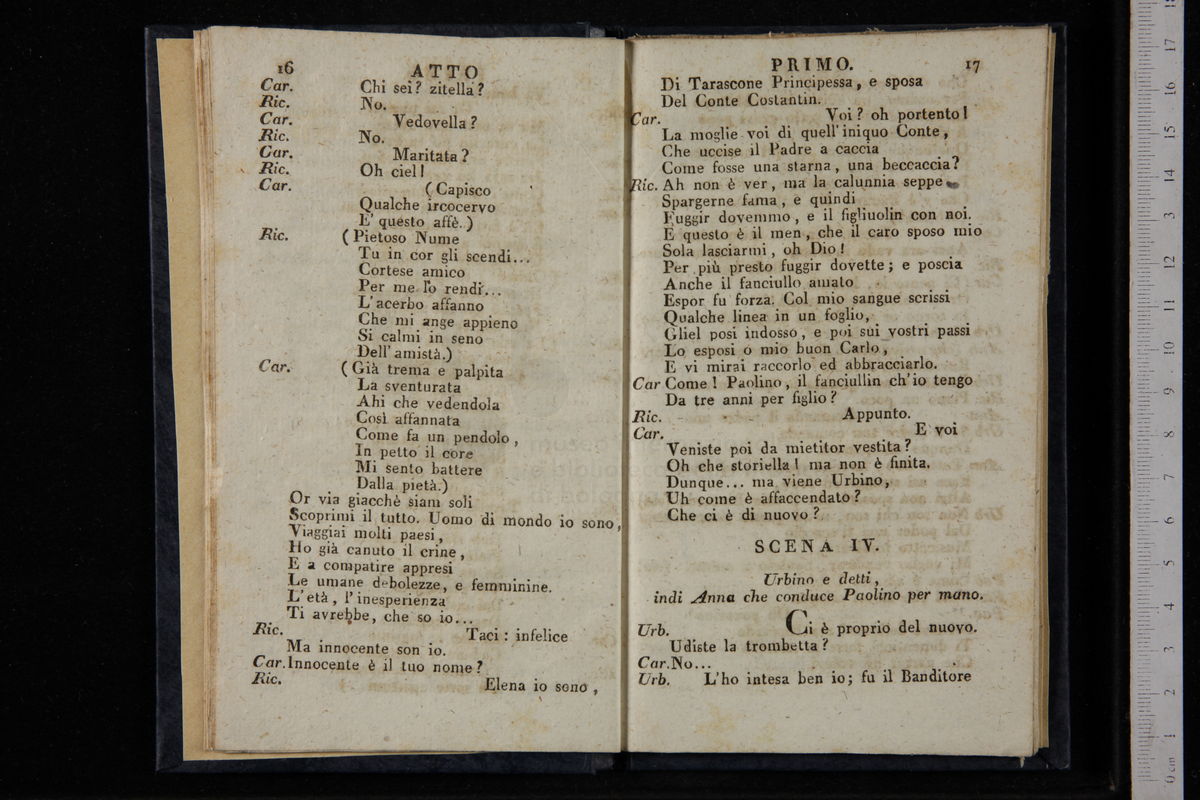 16
ATTO
Car. Chi sei? zitella?
Ric. No.
Car. Vedovella?
Ric. No.
Car. Maritata?
Ric. Oh ciel!
Car. (Capisco
Qualche ircocervo
E' questo affè.)
Ric. (Pietoso Nume
Tu in cor gli scendi...
Cortese amico
Per me lo rendi...
L'acerbo affanno
Che mi ange appieno
Si calmi in seno
Dell' amistà.)
Car. (Già trema e palpita
La sventurata
Ahi che vedendola
Così affannata
Come fa un pendolo,
In petto il core
Mi sento battere
Dalla pietà.)
Or via giacchè siam soli
Scoprimi il tutto. Uomo di mondo io sono,
Viaggiai molti paesi,
Ho già canuto il crine,
E a compatire appresi
Le umane debolezze, e femminine.
L'età, l'inesperienza
Ti avrebbe, che so io...
Ric. Taci: infelice
Ma innocente son io.
Car. Innocente è il tuo nome?
Ric. Elena io sono,
PRIMO.
17
Di Tarascone Principessa, e sposa
Del Conte Costantin.
Car. Voi? oh portento!
La moglie voi di quell' iniquo Conte,
Che uccise il Padre a caccia
Come fosse una starna, una beccaccia?
Ric. Ah non è ver, ma la calunnia seppe
Spargerne fama, e quindi
Fuggir dovemmo, e il figliuolin con noi.
E questo è il men, che il caro sposo mio
Sola lasciarmi, oh Dio!
Per più presto fuggir dovette; e poscia
Anche il fanciullo amato
Espor fu forza. Col mio sangue scrissi
Qualche linea in un foglio,
Gliel posi indosso, e poi sui vostri passi
Lo esposi o mio buon Carlo,
E vi mirai raccorlo ed abbracciarlo.
Car Come! Paolino, il fanciullin ch'io tengo
Da tre anni per figlio?
Ric. Appunto.
Car. E voi
Veniste poi da mietitor vestita?
Oh che storiella! ma non è finita.
Dunque... ma viene Urbino,
Uh come è affaccendato?
Che ci è di nuovo?
SCENA IV.
Urbino e detti,
indi Anna che conduce Paolino per mano.
Urb. Ci è proprio del nuovo.
Udiste la trombetta?
Car. No...
Urb. L'ho intesa ben io; fu il Banditore